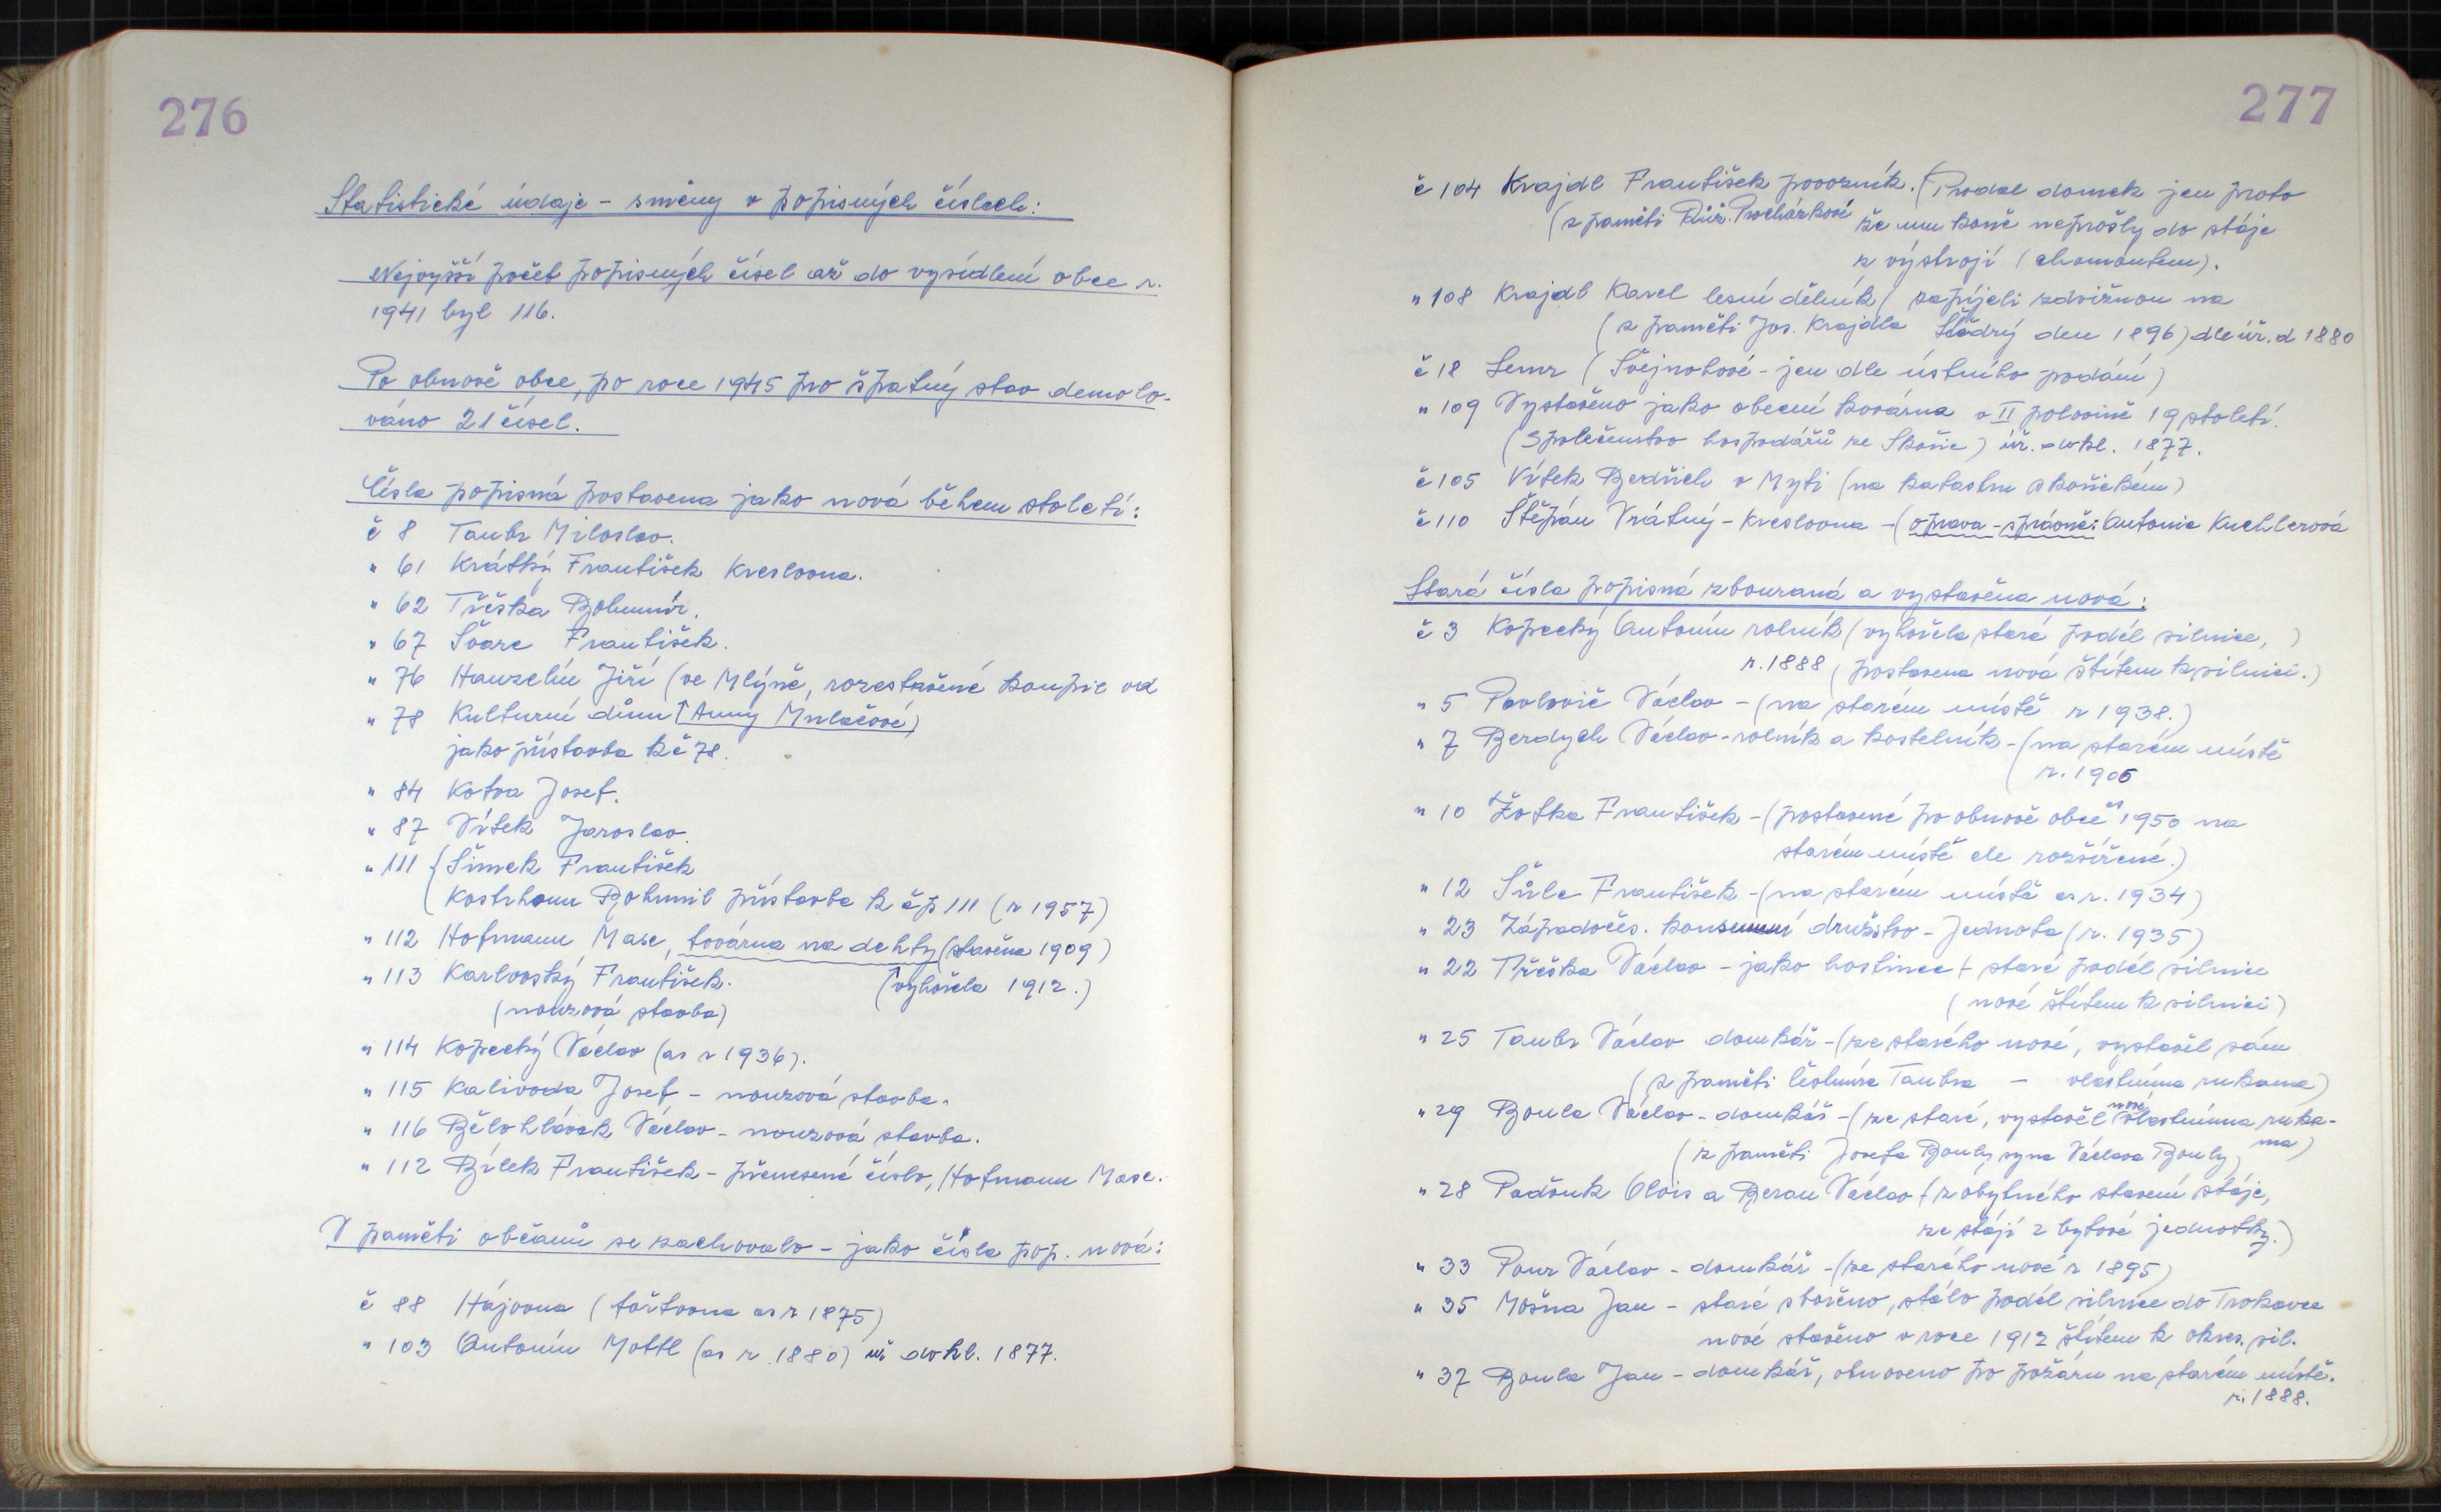 276
Statistické údaje - směny v popisných číslech:
Nejvyšší počet popisných čísel až do vysídlení obce r.
1941 byl 116.
Po obnově obce, po roce 1945 pro špatný stav demolo-
váno 21 čísel.
Čísla popisná postavena jako nová během století:
č 8 Taubr Miloslav.
" 61 Krátký František Kreslovna.
" 62 Třeška Bohumír.
" 67 Švarc František.
" 76 Hanzelín Jiří (ve Mlýně, rozestavěné koupil od
" 78 Kulturní dům ↑ Anny Mulačové)
jako přístavba k č 78.
" 84 Kotva Josef.
" 87 Vítek Jaroslav.
" 111 { Šimek František
Kostrhoun Bohumil přístavba k čp 111 (r 1957)
" 112 Hofmann Maxe, továrna na dehty (stavěna 1909)
" 113 Karlovský František. (↑ vyhořela 1912.)
(nouzová stavba)
" 114 Kopecký Václav (as r 1936).
" 115 Kalivoda Josef - nouzová stavba.
" 116 Bělohlávek Václav - nouzová stavba.
" 112 Bílek František - přenesené číslo, Hofmann Maxe.
V paměti občanů se zachovalo - jako čísla pop. nová:
č 88 Hájovna (fořtovna as r 1875)
" 103 Antonín Mottl (as r. 1880) úř dokl. 1877.
277
č 104 Krajdl František povozník. (Prodal domek jen proto
(z paměti Růž. Procházkové že mu koně neprošly do stáje
z výstrojí (chomoutem).
" 108 Krajdl Karel lesní dělník (zapíjeli zdvižnou na
(z paměti Jos. Krajdla Štědrý den 1896) dle úř. d 1880
č 18 Lenz (Švejnohové - jen dle ústního podání)
" 109 Vystavěno jako obecní kovárna v II polovině 19 století.
(Společenstvo hospodářů ze Skořic) úř. dokl. 1877.
č 105 Vítek Bedřich v Myti (na katastru skořickém)
č 110 Štěpán Vrátný - Kreslovna - (oprava - správně: Antonie Kuchlerová
Stará čísla popisná zbouraná a vystavěna nová:
č 3 Kopecký Antonín rolník (vyhořela stará podél silnice,)
r. 1888 (postavena nová štítem k silnici.)
" 5 Pavlovič Václav - (na starém místě r 1938.)
" 7 Berdych Václav - rolník a kostelník - (na starém místě
(r. 1905
" 10 Žofka František - (postavené po obnově obce 1950 na
starém místě ale rozšířené.)
" 12 Šůla František - (na starém místě as r. 1934)
" 23 Západočes. konsumní družstvo - Jednota (r. 1935)
" 22 Třeška Václav - jako hostinec + staré podél silnice
(nové štítem k silnici)
" 25 Taubr Václav domkář - (ze starého nové, vystavěl sám
(z paměti Čestmíra Taubra - vlastníma rukama)
" 29 Boula Václav - domkář - (ze staré, vystavěl nové vlastníma ruka-
(z paměti Josefa Bouly, syna Václava Bouly) ma)
" 28 Pađouk Alois a Beran Václav (z obytného stavení stáje,
ze stájí 2 bytové jednotky.)
" 33 Pour Václav - domkář - (ze starého nové r 1895)
" 35 Mošna Jan - staré zbořeno, stálo podél silnice do Trokavce
nové stavěno v roce 1912 štítem k okres. sil.
" 37 Boula Jan - domkář, obnoveno po požáru na starém místě.
r. 1888.